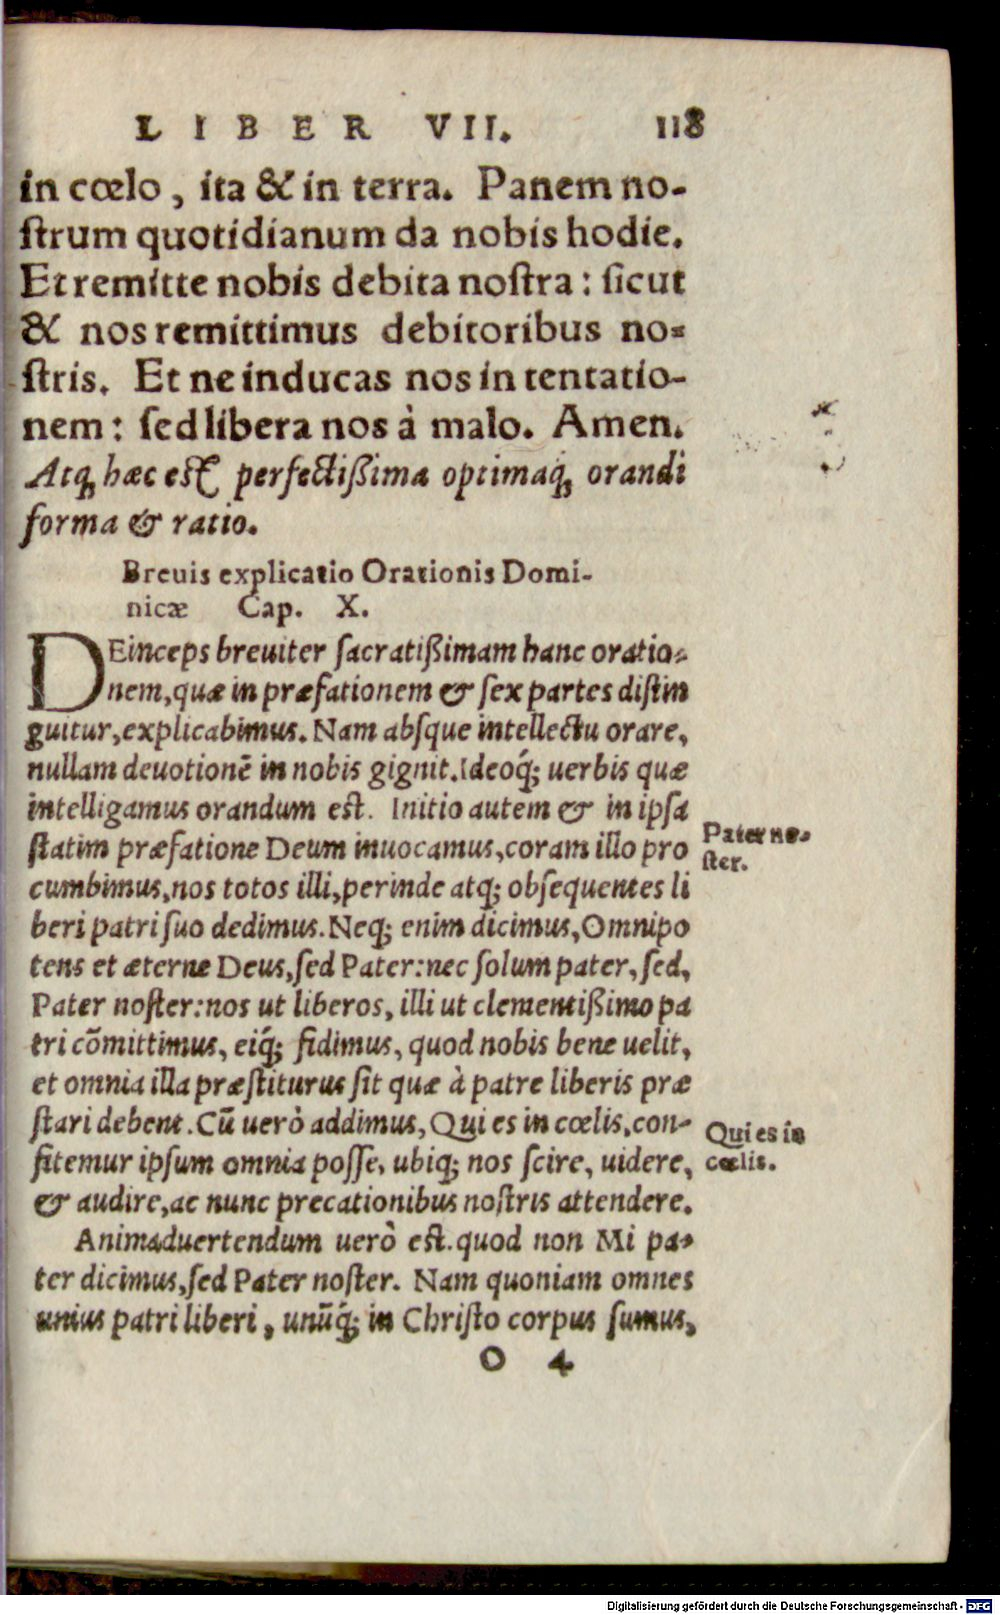 LIBER VII. 118
in cœlo, ita & in terra. Panem no-
ſtrum quotidianum da nobis hodie.
Et remitte nobis debita noſtra: ſicut
& nos remittimus debitoribus no-
ſtris. Et ne inducas nos in tentatio-
nem: ſed libera nos à malo. Amen.
Atq; hæc eſt perfectißima optimaq́; orandi
forma & ratio.
Breuis explicatio Orationis Domi-
nicæ Cap. X.
DEinceps breuiter ſacratißimam hanc oratio-
nem, quæ in præfationem & ſex partes diſtin
guitur, explicabimus. Nam abſque intellectu orare,
nullam deuotionē in nobis gignit. Ideoq́; uerbis quæ
intelligamus orandum eſt. Initio autem & in ipſa
ſtatim præfatione Deum inuocamus, coram illo pro
Pater no-
ſter.
cumbimus, nos totos illi, perinde atq; obſequentes li
beri patri ſuo dedimus. Neq; enim dicimus, Omnipo
tens et æterne Deus, ſed Pater: nec ſolum pater, ſed,
Pater noſter: nos ut liberos, illi ut clementißimo pa
tri cōmittimus, eiq́; fidimus, quod nobis bene uelit,
et omnia illa præſtiturus ſit quæ à patre liberis præ
ſtari debent. Cū uerò addimus, Qui es in cœlis, con-
Qui es in
cœlis.
fitemur ipſum omnia poſſe, ubiq; nos ſcire, uidere,
& audire, ac nunc precationibus noſtris attendere.
Animaduertendum uerò eſt. quod non Mi pa-
ter dicimus, ſed Pater noſter. Nam quoniam omnes
unius patri liberi, unūq́; in Chriſto corpus ſumus,
O 4
Digitalisierung gefördert durch die Deutsche Forschungsgemeinschaft - DFG